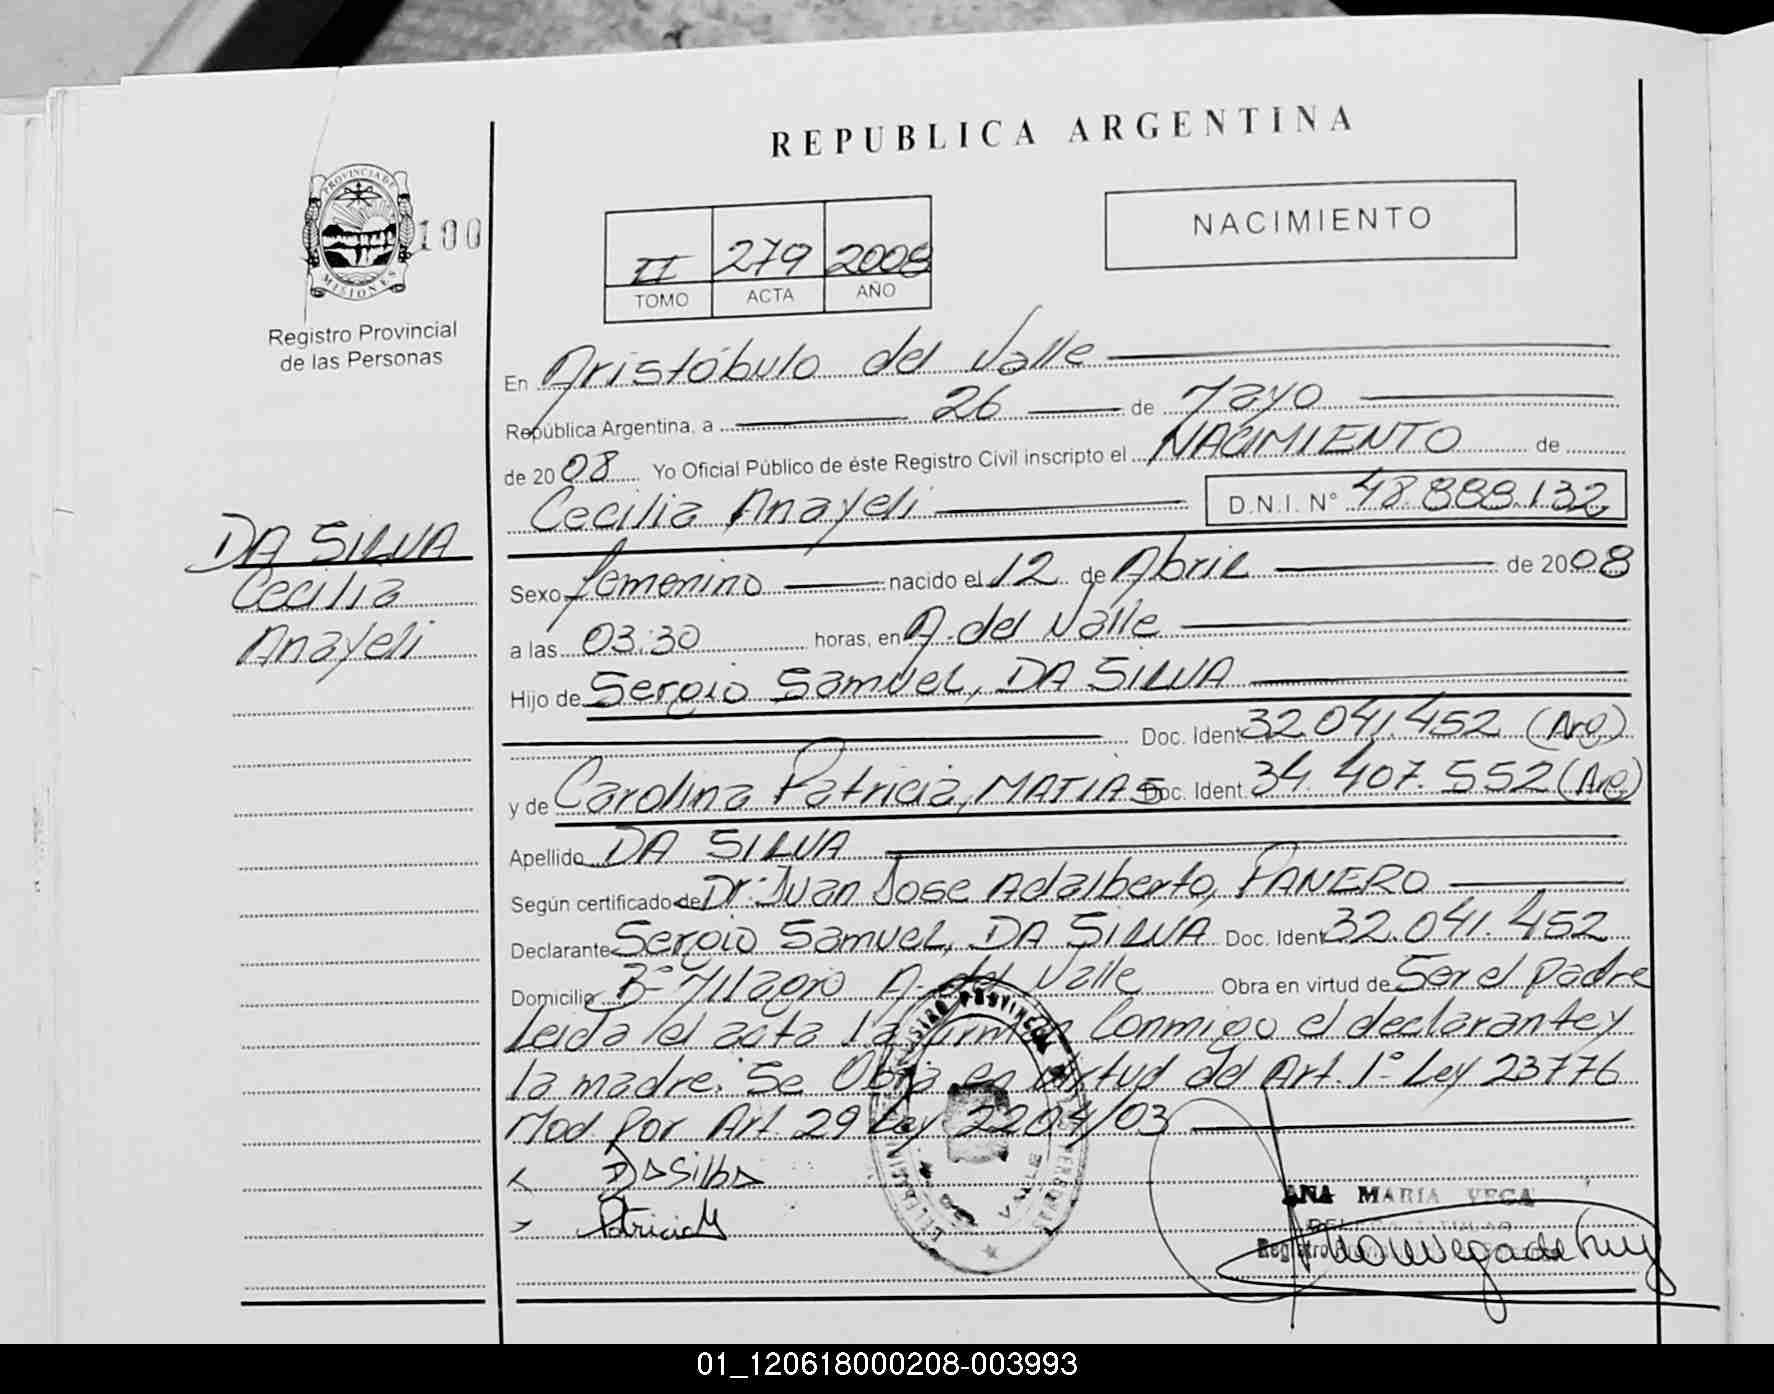 REPUBLICA ARGENTINA
PROVINCIA DE
MISIONES
100
Registro Provincial
de las Personas
II 279 2008
TOMO ACTA AÑO
NACIMIENTO
En Aristóbulo del Valle
República Argentina, a 26 de Mayo
de 2008 Yo Oficial Público de éste Registro Civil inscripto el NACIMIENTO de
Cecilia Anayeli D.N.I. Nº 48.888.132
DA SILVA
Cecilia
Anayeli
Sexo femenino nacido el 12 de Abril de 2008
a las 03:30 horas, en A. del Valle
Hijo de Sergio Samuel, DA SILVA
Doc. Ident. 32.041.452 (Arg)
y de Carolina Patricia, MATIAS Doc. Ident. 34.407.552 (Arg)
Apellido DA SILVA
Según certificado de Dr. Juan Jose Adalberto, PANERO
Declarante Sergio Samuel, DA SILVA Doc. Ident 32.041.452
Domicilio Bº Milagro A. del Valle Obra en virtud de Ser el padre
Leida el acta la firman Conmigo el declarante y
la madre. Se Obra en virtud del Art. 1º Ley 23776
Mod. por Art 29 Ley 2204/03
DaSilba
Patricia M
ANA MARIA VEGA
01_120618000208-003993